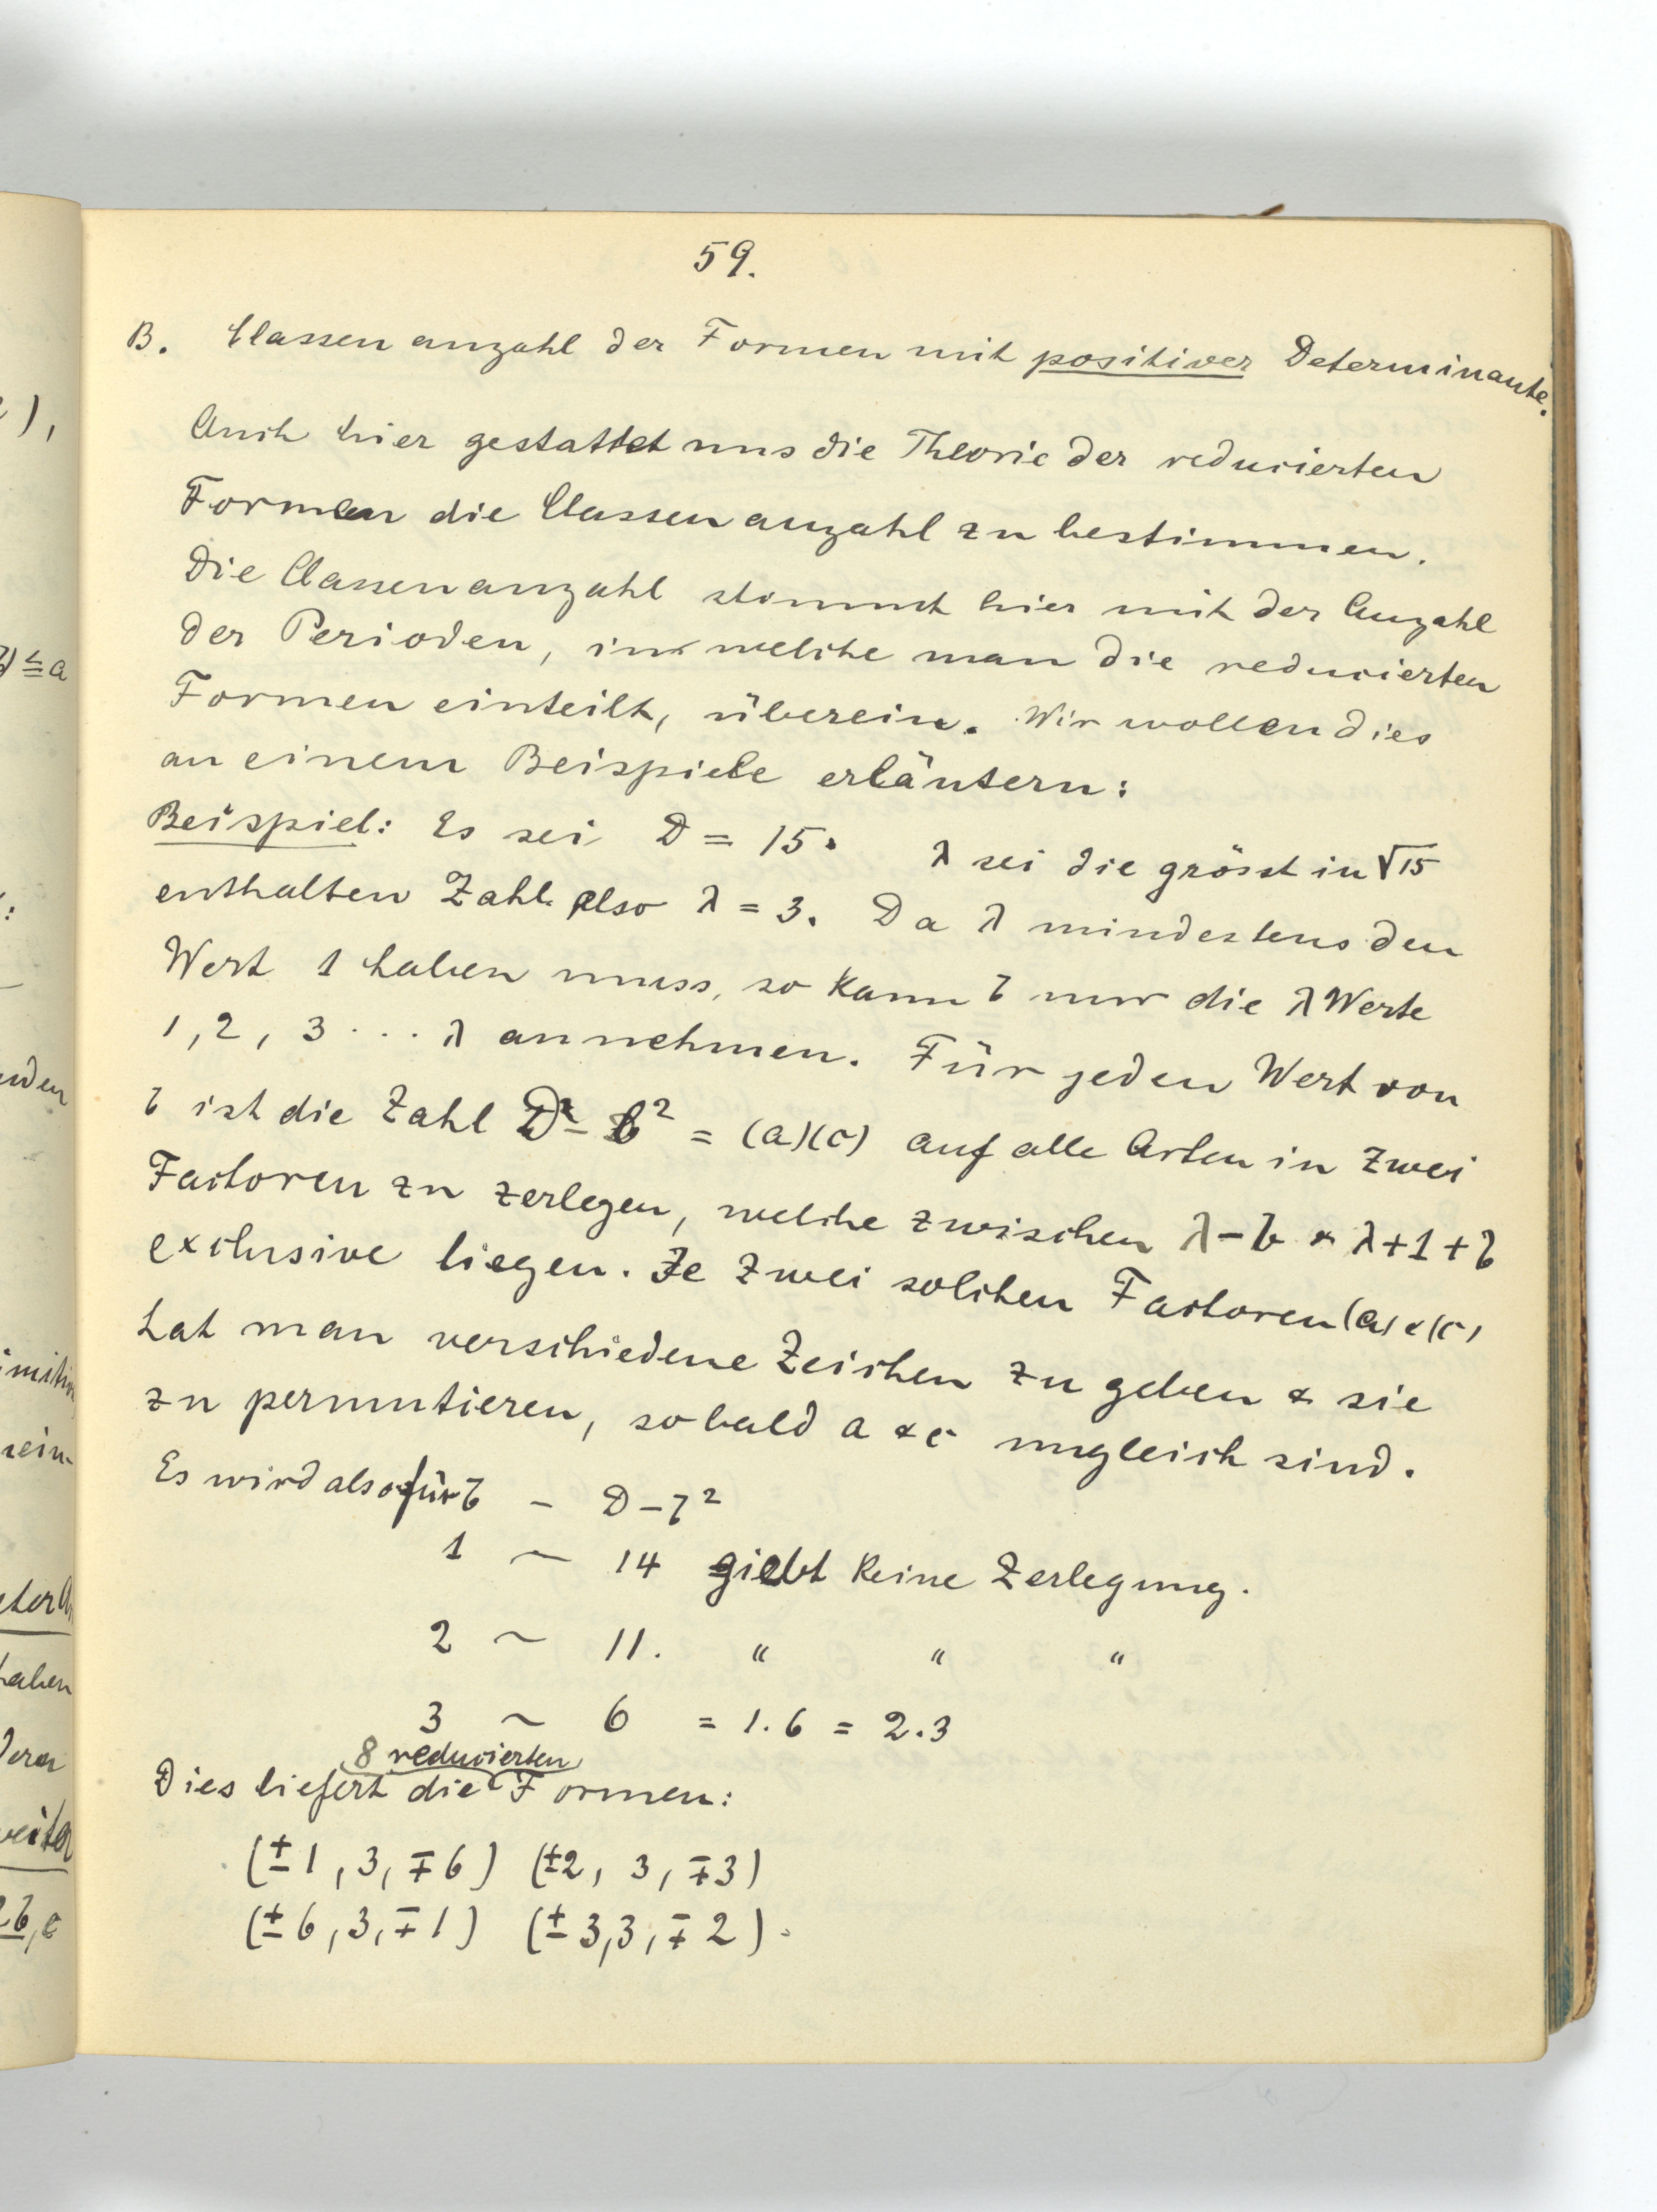 59.
B. Classenanzahl der Formen mit positiver Determinante.
Auch hier gestattet uns die Theorie der reducierten
Formen die Classenanzahl zu bestimmen.
Die Classenanzahl stimmt hier mit der Anzahl
der Perioden, in welche man die reducierten
Formen einteilt, überein. Wir wollen dies
an einem Beispiele erläutern:
Beispiel: Es sei D = 15. λ sei die grösst in √15
enthalten Zahl also λ = 3. Da λ mindestens den
Wert 1 haben muss, so kann b nur die λ Werte
1, 2, 3 ... λ annehmen. Für jeden Wert von
b ist die Zahl D - b² = (a)(c) auf alle Arten in zwei
Factoren zu zerlegen, welche zwischen λ-b & λ+1+b
exclusive liegen. Je zwei solchen Factoren (a) & (c)
hat man verschiedene Zeichen zu geben & sie
zu permutieren, sobald a & c ungleich sind.
Es wird also für b – D - b²
1 ~ 14 giebt keine Zerlegung.
2 ~ 11. " " "
3 ~ 6 = 1.6 = 2.3
8 reducierten
Dies liefert die Formen:
(±1, 3, ∓6) (±2, 3, ∓3)
(±6, 3, ∓1) (±3, 3, ∓2).
),
≦a
:
nden
rein-
haben
weiter
2b, c